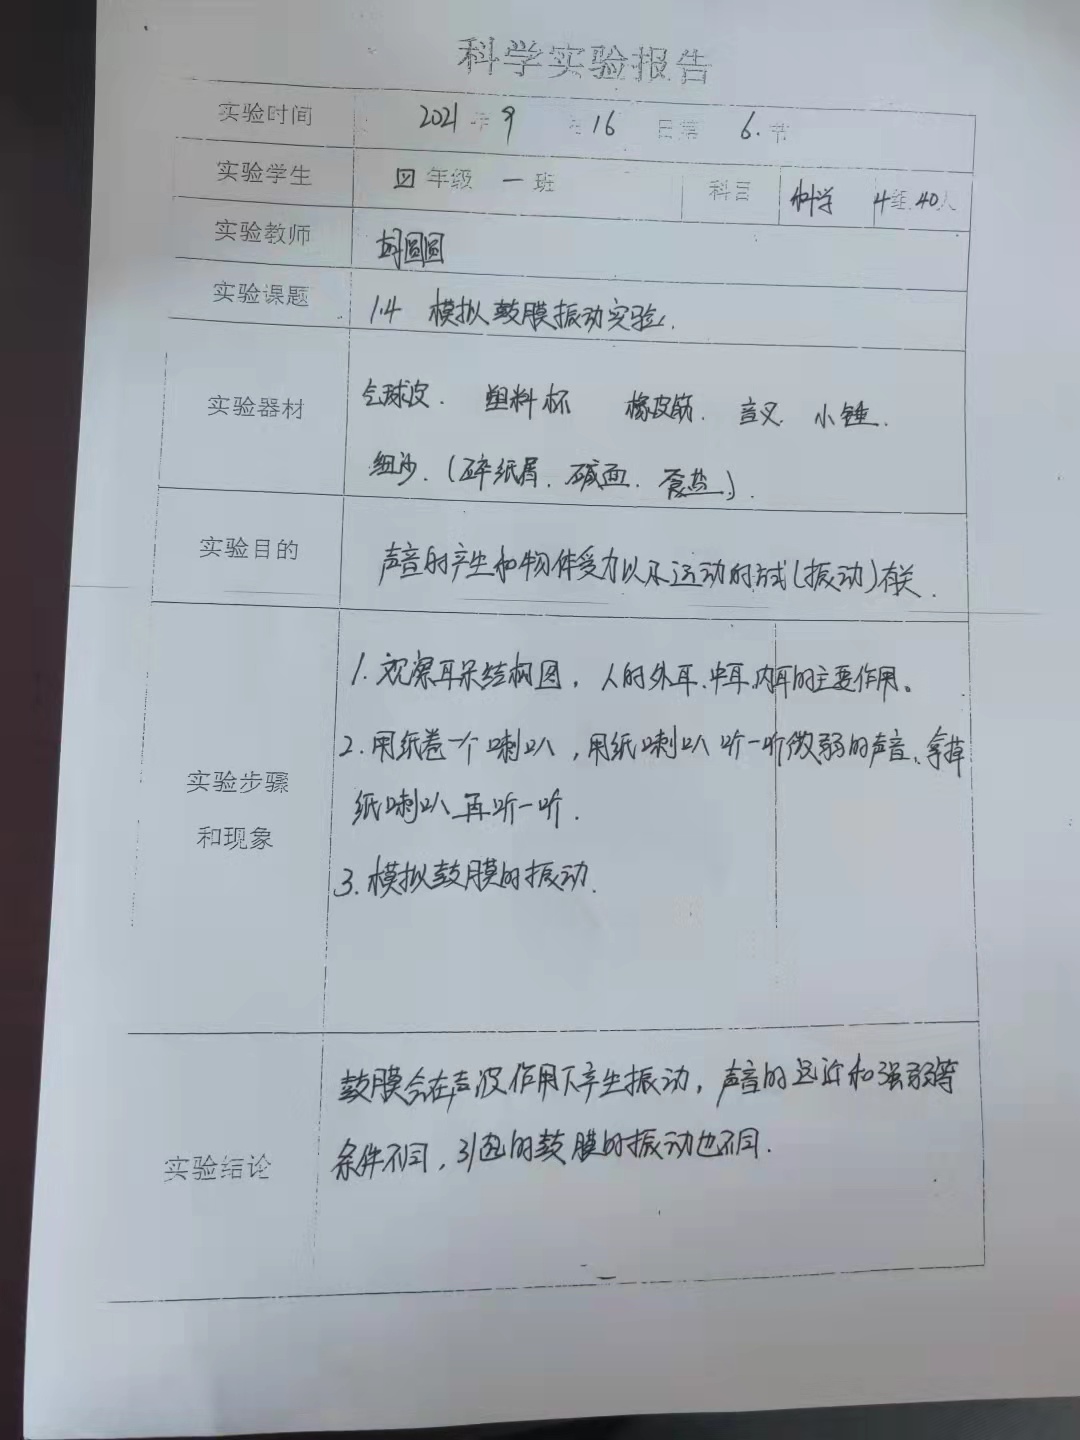 科学实验报告
实验时间 2021年9月16日第6.节
实验学生 四年级 一班 科目 科学 4组40人
实验教师 胡圆圆
实验课题 1.4 模拟鼓膜振动实验.
实验器材 气球皮. 塑料杯 橡皮筋. 音叉. 小锤.
细沙.(碎纸屑、碱面、食盐).
实验目的 声音的产生和物体受力以及运动的方式(振动)有关.
实验步骤
和现象
1.观察耳朵结构图,人的外耳、中耳、内耳的主要作用。
2.用纸卷一个喇叭,用纸喇叭听一听微弱的声音、拿掉
纸喇叭再听一听.
3.模拟鼓膜的振动.
实验结论
鼓膜会在声波作用下产生振动,声音的远近和强弱等
条件不同,引起的鼓膜的振动也不同.